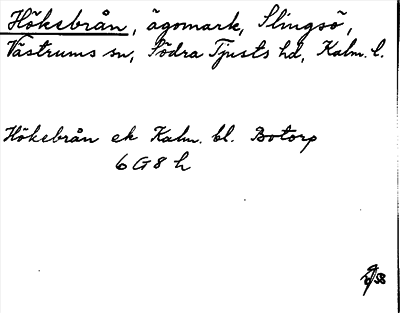 Hökebrån, ägomark, Slingsö,
Västrums sn, Södra Tjusts hd, Kalm. l.
Hökebrån ek Kalm. bl. Botorp
6 G 8 h